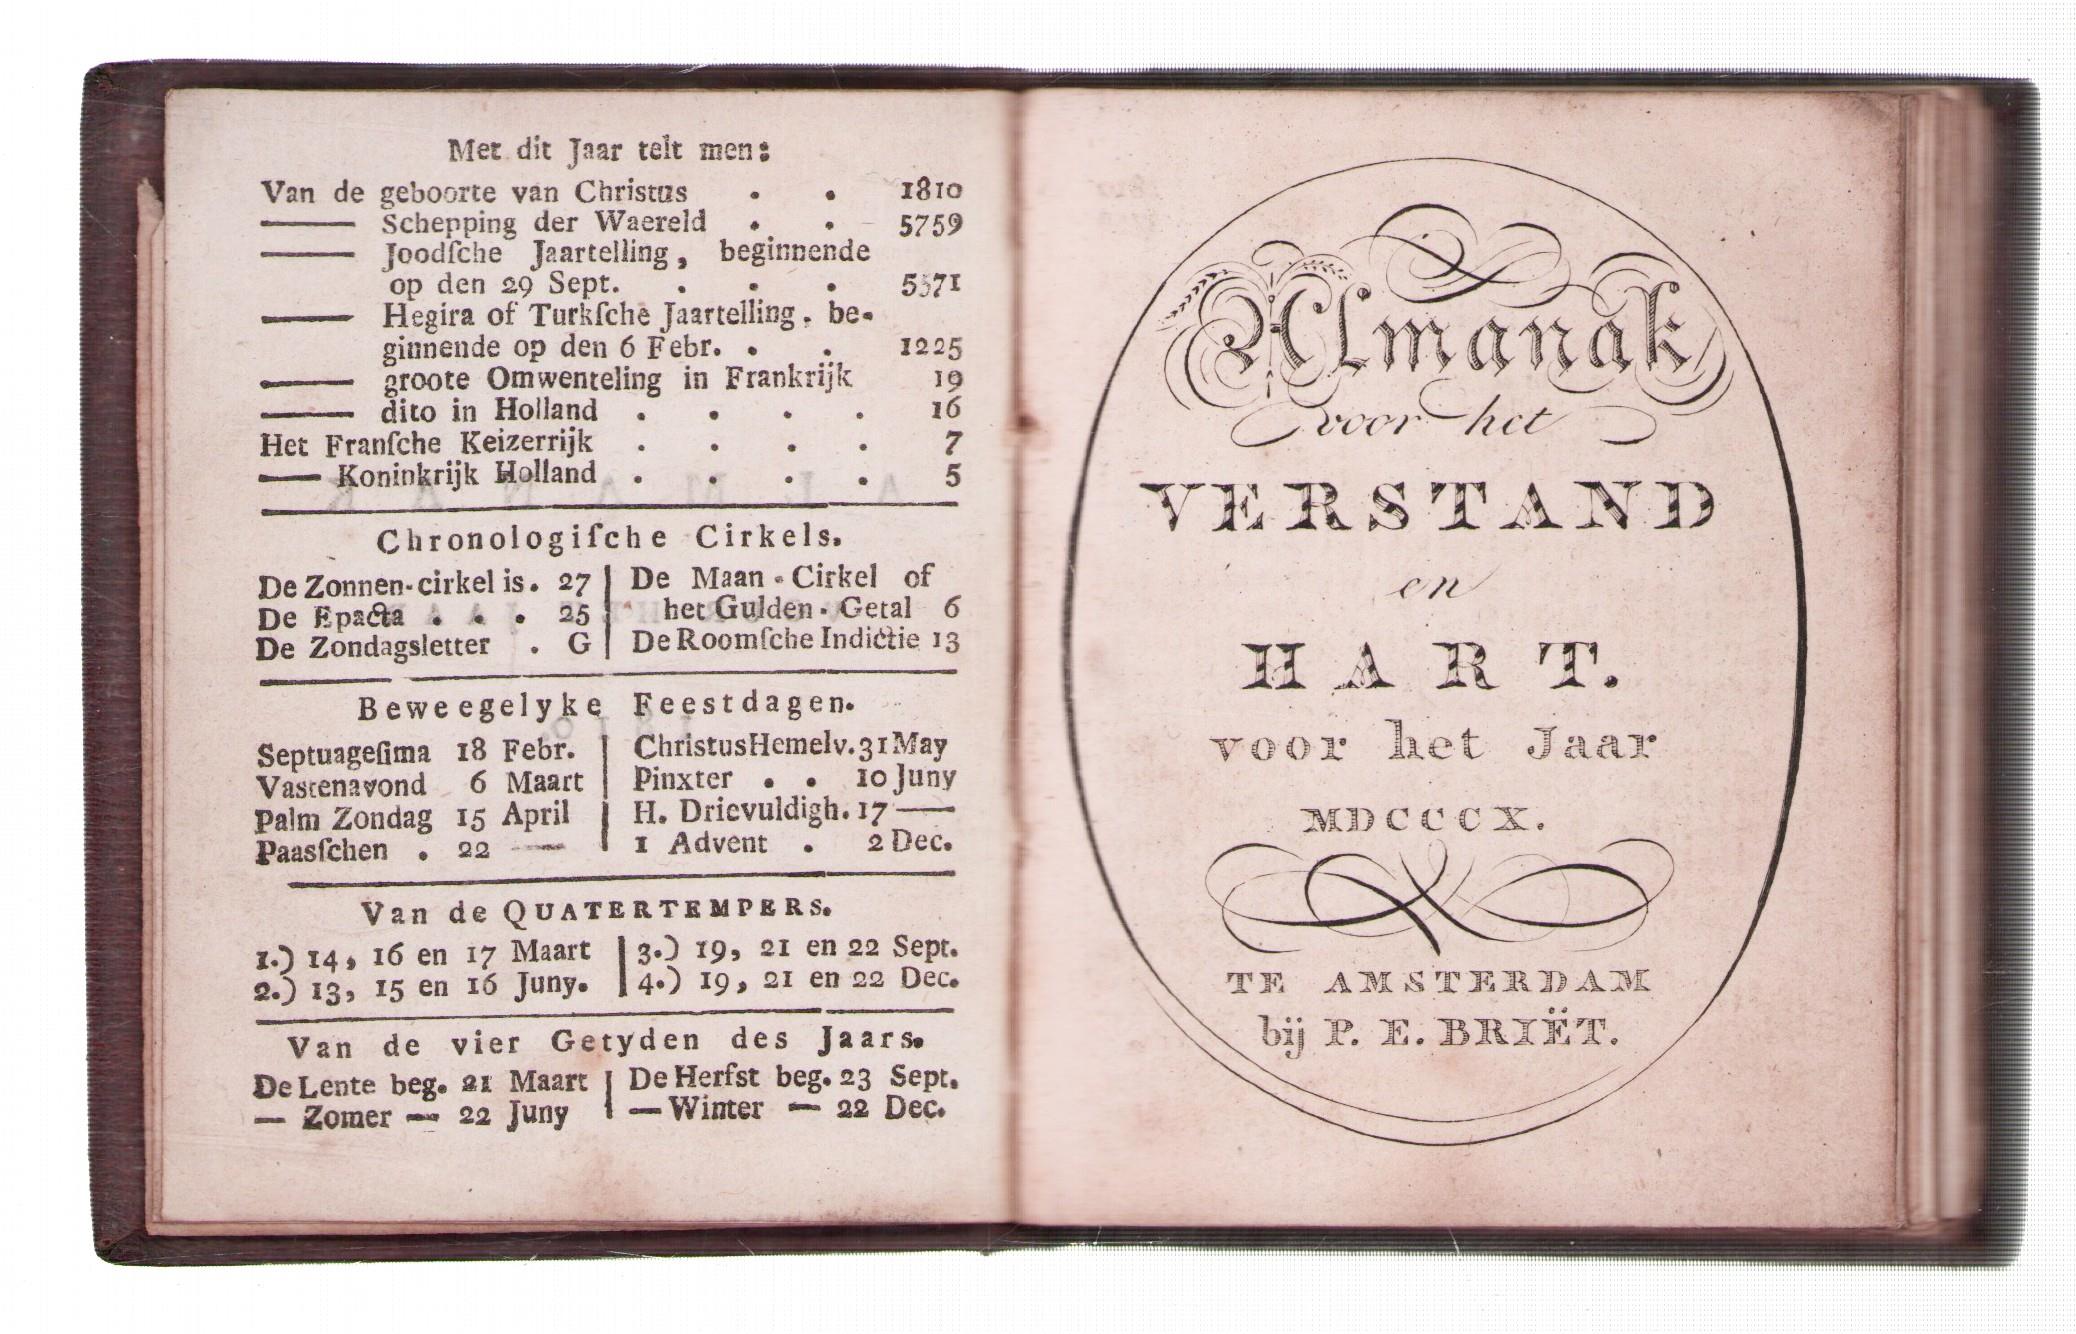 Met dit Jaar telt men:
Van de geboorte van Christus . . 1810
—— Schepping der Waereld . . 5759
—— Joodſche Jaartelling, beginnende
op den 29 Sept. . . . 5571
—— Hegira of Turkſche Jaartelling, be-
ginnende op den 6 Febr. . . 1225
—— groote Omwenteling in Frankrijk 19
—— dito in Holland . . . . 16
Het Franſche Keizerrijk . . . . 7
—— Koninkrijk Holland . . . . 5
Chronologiſche Cirkels.
De Zonnen-cirkel is. 27
De Epacta . . . 25
De Zondagsletter . G
De Maan-Cirkel of
het Gulden-Getal 6
De Roomſche Indictie 13
Beweegelyke Feestdagen.
Septuageſima 18 Febr.
Vastenavond 6 Maart
Palm Zondag 15 April
Paasſchen . 22 ——
Christus Hemelv. 31 May
Pinxter . . 10 Juny
H. Drievuldigh. 17 ——
1 Advent . 2 Dec.
Van de QUATERTEMPERS.
1.) 14, 16 en 17 Maart
2.) 13, 15 en 16 Juny.
3.) 19, 21 en 22 Sept.
4.) 19, 21 en 22 Dec.
Van de vier Getyden des Jaars.
De Lente beg. 21 Maart
— Zomer — 22 Juny
De Herfst beg. 23 Sept.
— Winter — 22 Dec.
Almanak
voor het
VERSTAND
en
HART.
voor het Jaar
MDCCCX.
TE AMSTERDAM
bij P. E. BRIËT.